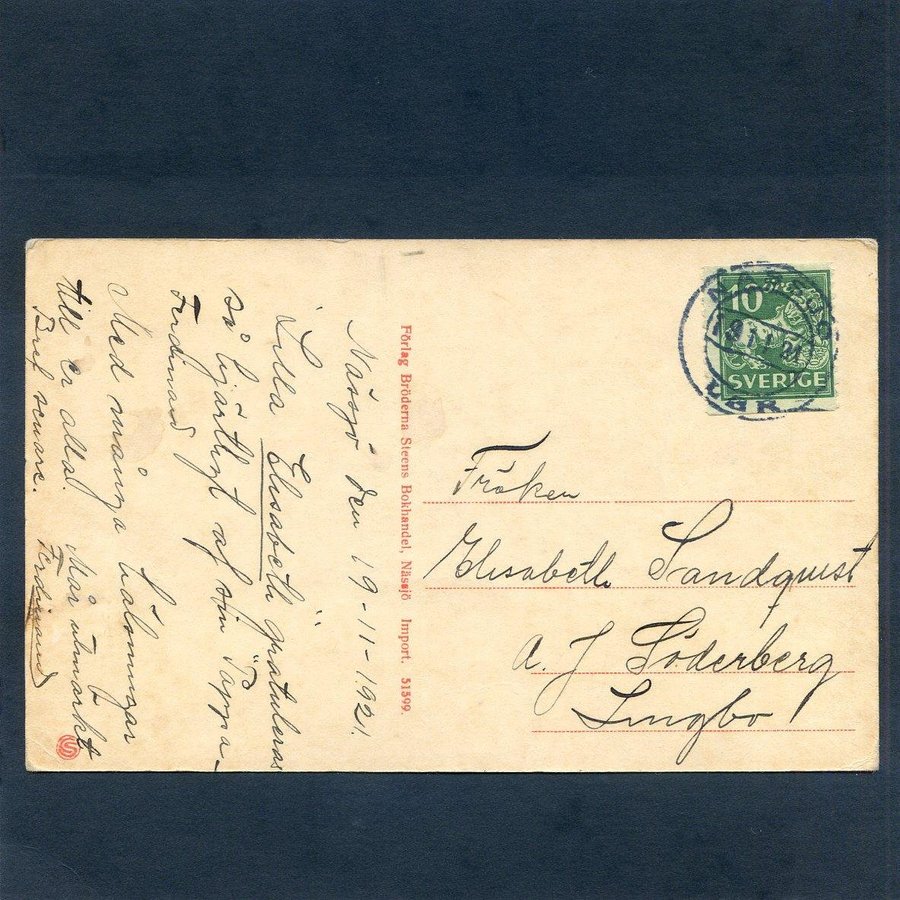 Nässjö den 19-11-1921.
Lilla Elisabeth gratuleras
så hjärtligt af sin Pappa-
Ferdinand
Med många hälsningar
till er alla. Mår utmärkt
Bref snare. Ferdinand
Förlag Bröderna Steens Bokhandel, Nässjö Import. 51599.
10
SVERIGE
19 11 21
Fröken
Elisabeth Sandquist
A. J Söderberg
Lingbo